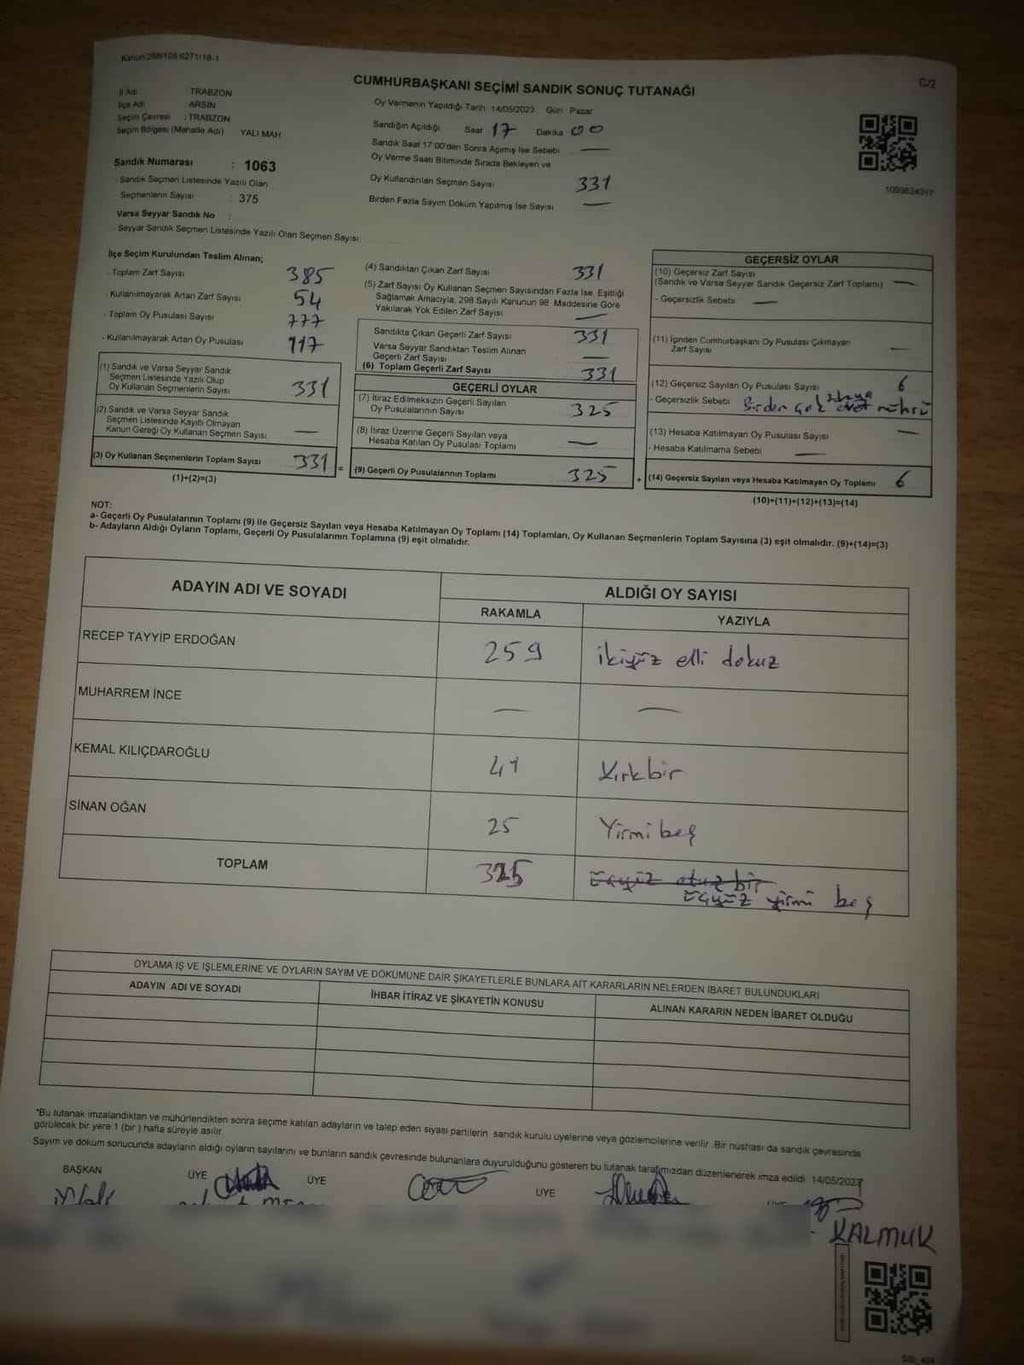 Kanun:298/106 6271/18-1
C/2
CUMHURBAŞKANI SEÇİMİ SANDIK SONUÇ TUTANAĞI
İl Adı : TRABZON
İlçe Adı : ARSİN
Seçim Çevresi : TRABZON
Seçim Bölgesi (Mahalle Adı) YALI MAH
Sandık Numarası : 1063
Sandık Seçmen Listesinde Yazılı Olan
Seçmenlerin Sayısı : 375
Varsa Seyyar Sandık No :
Seyyar Sandık Seçmen Listesinde Yazılı Olan Seçmen Sayısı:
Oy Vermenin Yapıldığı Tarih: 14/05/2023 Gün: Pazar
Sandığın Açıldığı Saat 17 Dakika 00
Sandık Saat 17:00'den Sonra Açılmış İse Sebebi —
Oy Verme Saati Bitiminde Sırada Bekleyen ve
Oy Kullandırılan Seçmen Sayısı 331
Birden Fazla Sayım Döküm Yapılmış İse Sayısı —
İlçe Seçim Kurulundan Teslim Alınan;
- Toplam Zarf Sayısı 385
- Kullanılmayarak Artan Zarf Sayısı 54
- Toplam Oy Pusulası Sayısı 777
- Kullanılmayarak Artan Oy Pusulası 117
(1) Sandık ve Varsa Seyyar Sandık
Seçmen Listesinde Yazılı Olup
Oy Kullanan Seçmenlerin Sayısı 331
(2) Sandık ve Varsa Seyyar Sandık
Seçmen Listesinde Kayıtlı Olmayan
Kanun Gereği Oy Kullanan Seçmen Sayısı —
(3) Oy Kullanan Seçmenlerin Toplam Sayısı 331 =
(1)+(2)=(3)
(4) Sandıktan Çıkan Zarf Sayısı 331
(5) Zarf Sayısı Oy Kullanan Seçmen Sayısından Fazla İse, Eşitliği
Sağlamak Amacıyla, 298 Sayılı Kanunun 98. Maddesine Göre
Yakılarak Yok Edilen Zarf Sayısı —
Sandıkta Çıkan Geçerli Zarf Sayısı 331
Varsa Seyyar Sandıktan Teslim Alınan
Geçerli Zarf Sayısı —
(6) Toplam Geçerli Zarf Sayısı 331
GEÇERLİ OYLAR
(7) İtiraz Edilmeksizin Geçerli Sayılan
Oy Pusulalarının Sayısı 325
(8) İtiraz Üzerine Geçerli Sayılan veya
Hesaba Katılan Oy Pusulası Toplamı —
(9) Geçerli Oy Pusulalarının Toplamı 325 +
GEÇERSİZ OYLAR
(10) Geçersiz Zarf Sayısı
(Sandık ve Varsa Seyyar Sandık Geçersiz Zarf Toplamı) —
- Geçersizlik Sebebi —
(11) İçinden Cumhurbaşkanı Oy Pusulası Çıkmayan
Zarf Sayısı —
(12) Geçersiz Sayılan Oy Pusulası Sayısı 6
- Geçersizlik Sebebi Birden çok adaya evet mührü
(13) Hesaba Katılmayan Oy Pusulası Sayısı —
- Hesaba Katılmama Sebebi —
(14) Geçersiz Sayılan veya Hesaba Katılmayan Oy Toplamı 6
(10)+(11)+(12)+(13)=(14)
NOT:
a- Geçerli Oy Pusulalarının Toplamı (9) ile Geçersiz Sayılan veya Hesaba Katılmayan Oy Toplamı (14) Toplamları, Oy Kullanan Seçmenlerin Toplam Sayısına (3) eşit olmalıdır. (9)+(14)=(3)
b- Adayların Aldığı Oyların Toplamı, Geçerli Oy Pusulalarının Toplamına (9) eşit olmalıdır.
ADAYIN ADI VE SOYADI ALDIĞI OY SAYISI
RAKAMLA YAZIYLA
RECEP TAYYİP ERDOĞAN 259 ikiyüz elli dokuz
MUHARREM İNCE — —
KEMAL KILIÇDAROĞLU 41 Kırkbir
SİNAN OĞAN 25 Yirmi beş
TOPLAM 325 Üçyüz otuz bir
Üçyüz yirmi beş
OYLAMA İŞ VE İŞLEMLERİNE VE OYLARIN SAYIM VE DÖKÜMÜNE DAİR ŞİKAYETLERLE BUNLARA AİT KARARLARIN NELERDEN İBARET BULUNDUKLARI
ADAYIN ADI VE SOYADI İHBAR İTİRAZ VE ŞİKAYETİN KONUSU ALINAN KARARIN NEDEN İBARET OLDUĞU
*Bu tutanak imzalandıktan ve mühürlendikten sonra seçime katılan adayların ve talep eden siyasi partilerin sandık kurulu üyelerine veya gözlemcilerine verilir. Bir nüshası da sandık çevresinde
görülecek bir yere 1 (bir) hafta süreyle asılır.
Sayım ve döküm sonucunda adayların aldığı oyların sayılarını ve bunların sandık çevresinde bulunanlara duyurulduğunu gösteren bu tutanak tarafımızdan düzenlenerek imza edildi. 14/05/2023
BAŞKAN ÜYE ÜYE ÜYE
KALMUK